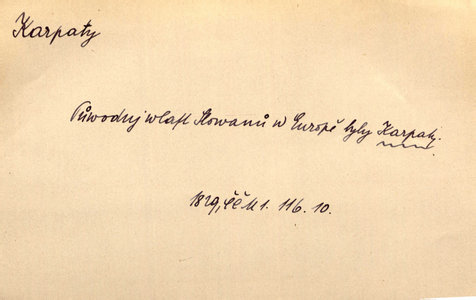 Karpaty
Půwodnj wlast Slowanů w Europě byly Karpaty.
1829, ČČM 1. 116. 10.